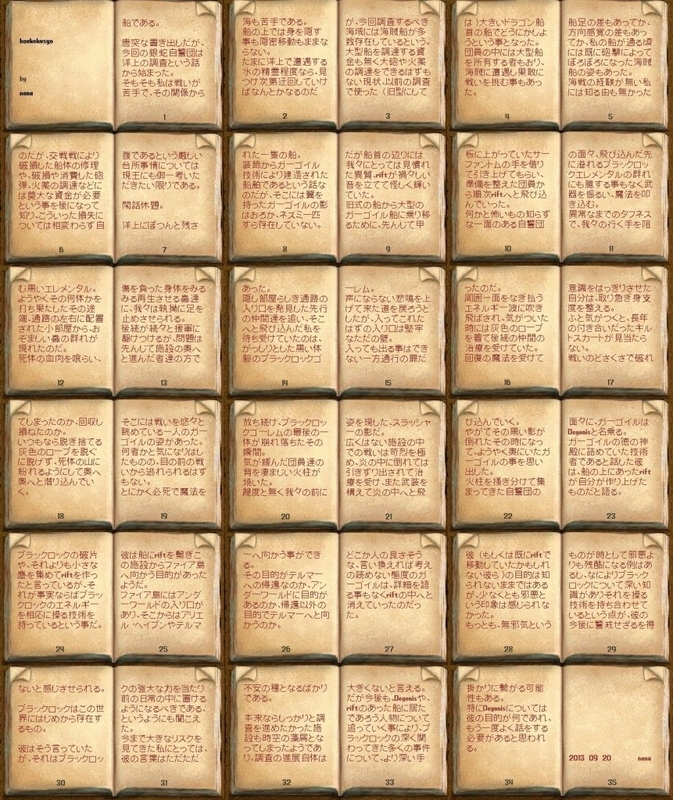 houkokusyo
by
nana
船である。
唐突な書き出しだが、
今回の銀蛇自警団は
洋上の調査という話
から始まった。
そもそも私は戦いが
苦手で、その関係から
1
海も苦手である。
船の上では身を隠す
事も隠密移動もままな
らない。
たまに洋上で遭遇する
水の精霊程度なら、見
つけ次第迂回していけ
ばなんとかなるのだ
2
が、今回調査するべき
海域には海賊船が多
数存在しているという。
団には大型船を調達
する資金も無く大砲や火薬
の調達をできるはずも
ない現状、以前の調査
で使った（旧型にして
3
は）大きいドラゴン船
首の船でどうにかしよ
うという事となった。
団員の中には大型船
を所有する者もおり、
海賊に遭遇し果敢に
戦いを挑む事もあっ
た。
4
船足の差もあってか、
方向感覚の差もあっ
てか、私の船が通る頃
には既に砲撃によって
ぼろぼろになった海賊
船の姿もあった。
海戦の経験が無い私
には知る由も無かった
5
のだが、交戦戦により
破損した船体の修理
や、破損や消費した砲
弾、火薬の調達などに
は莫大な資金が必要
という事を後になって
知り、こういった損失に
ついては相変わらず自
6
腹であるという厳しい
台所事情については
現王にも御一考いた
だきたい限りである。
閑話休題。
洋上にぽつんと残さ
7
れた一隻の船。
装飾からガーゴイル
技術により建造された
船舶であるという話な
のだが、そこには翼を
持ったガーゴイルの影
はおろか、ネズミ一匹
すら存在していない。
8
だが船首の辺りには
我々にとっては見慣れ
た異質、riftが禍々しい
音を立てて怪しく輝い
ていた。
旧式の船から大型の
ガーゴイル船に乗り移
るために、先んじて甲
9
板に上がっていたサー
ファントムの手を借り
て引き上げてもらい、
準備を整えた団員か
ら順次riftへと飛び込
んでいった。
何かと怖いもの知らず
な一面のある自警団
10
の面々、飛び込んだ先
に溢れるブラックロッ
クエレメンタルの群れ
にも臆する事もなく武
器を振るい、魔法を叩
き込む。
異常なまでのタフネス
で、我々の行く手を阻
11
む黒いエレメンタル。
ようやくその何体かを
打ち果たしたその途
端、通路の左右に配置
された小部屋から、お
ぞましい蟲の群れが
現れたのだ。
死体の血肉を喰らい、
12
傷を負った身体をみる
みる再生させる蟲達
に、我々は執拗に足を
止めさせられる。
後続が続々と援軍に
駆けつけるが、問題は
先んじて施設の奥へ
と進んだ者達の方で
13
あった。
隠し部屋らしき通路の
入り口を発見した先行
の仲間達を追い、そこ
へと飛び込んだ私を
待ち受けていたのは、
がっしりとした黒い体
躯のブラックロックゴ
14
ーレム。
声にならない悲鳴を上
げて来た道を戻ろうと
したが、入ってこれた
はずの入り口は堅牢
なただの壁。
入っても出る事はでき
ない一方通行の扉だ
15
ったのだ。
周囲一面をなぎ払う
エネルギー波に吹き
飛ばされ、気がついた
時には灰色のローブ
を着て後続の仲間の
治療を受けていた。
回復の魔法を受けて
16
意識をはっきりさせた
自分は、取り急ぎ身支
度を整える。
ふと気がつくと、長年
の付き合いだったキル
トスカートが見当たら
ない。
戦いのどさくさで破れ
17
てしまったのか、回収し
損ねたのか。
いつもなら脱ぎ捨てる
灰色のローブを脱ぐ
に脱げず、死体の山に
紛れるようにして奥へ
奥へと潜り込んでい
く。
18
そこには戦いを悠々と
眺めている一人のガー
ゴイルの姿があった。
何者かと気になりはし
たものの、目の前の戦
いから逃れられるはず
もない。
とにかく必死で魔法を
19
放ち続け、ブラックロッ
クゴーレムの最後の一
体が崩れ落ちたその
瞬間。
気が緩んだ団員達の
背を凄まじい火柱が
焼いた。
躊躇と無く我々の前に
20
姿を現した、スラッシャ
ーの影だ。
広くはない施設の中
での戦いは苛烈を極
め、炎の中に倒れては
引きずり出されて治
療を受け、また武装を
構えて炎の中へと飛
21
び込んでいく。
やがてその黒い影が
倒れたその時になっ
て、ようやく奥にいたガ
ーゴイルの事を思い
出した。
火柱を掻き分けて集
まってきた自警団の
22
面々に、ガーゴイルは
Degonisと名乗る。
ガーゴイルの徳の神
殿に詰めていた技術
者であると話した彼
は、船の上にあったrift
が自分が作り上げた
ものだと語る。
23
ブラックロックの破片
や、それよりも小さな
塵を集めてriftを作っ
たと言っているが、そ
れが事実ならばブラッ
クロックのエネルギー
を相応に操る技術を
持っているという事だ。
24
彼は船にriftを繋ぎこ
の施設からファイア島
へ向かう目的があった
ようだ。
ファイア島にはアンダ
ーワールドの入り口が
あり、そこからはアリエ
ル・ヘイブンやテルマ
25
一へ向かう事ができ
る。
その目的がテルマー
への帰還なのか、アン
ダーワールドに目的が
あるのか、帰還以外の
目的でテルマーへと向
かうのか。
26
どこか人の良さそう
な、言い換えれば考え
の読めない態度のガ
ーゴイルは、詳細を語
る事もなくriftの中へと
消えていったのだっ
た。
27
彼（もしくは既にriftで
移動していたかもしれ
ない彼ら）の目的は知
られないままではある
が、少なくとも邪悪と
いう印象は感じられな
かった。
もっとも、無邪気という
28
ものが時として邪悪より
も残酷になる例はあ
るし、なによりブラック
ロックについて深い知
識がありそれを操る
技術を持ち合わせて
いるという点が、彼の
今後に警戒せざるを得
29
ないと感じさせられる。
ブラックロックはこの世
界にはじめから存在す
るもの。
彼はそう言っていた
が、それはブラックロッ
30
クの強大な力を当たり
前の日常の中に置ける
ようになるべきである、
というようにも聞こえ
た。
今まで大きなリスクを
見てきた私にとっては、
彼の言葉はただただ
31
不安の種となるばかり
である。
本来ならしっかりと調
査を進めたかった施
設も時空の藻屑とな
ってしまったようであ
り、調査の進展自体は
32
大きくないと言える。
だが今後も、Degonisや、
riftのあった船に居た
であろう人物について
追っていく事により、ブ
ラックロックの深く関
わってきた多くの事件
について、より深い手
33
掛かりに繋がる可能
性もある。
特にDegonisについては
彼の目的が何であれ、
もう一度よく話をする
必要があると思われ
る。
34
2013 09 20 nana
35